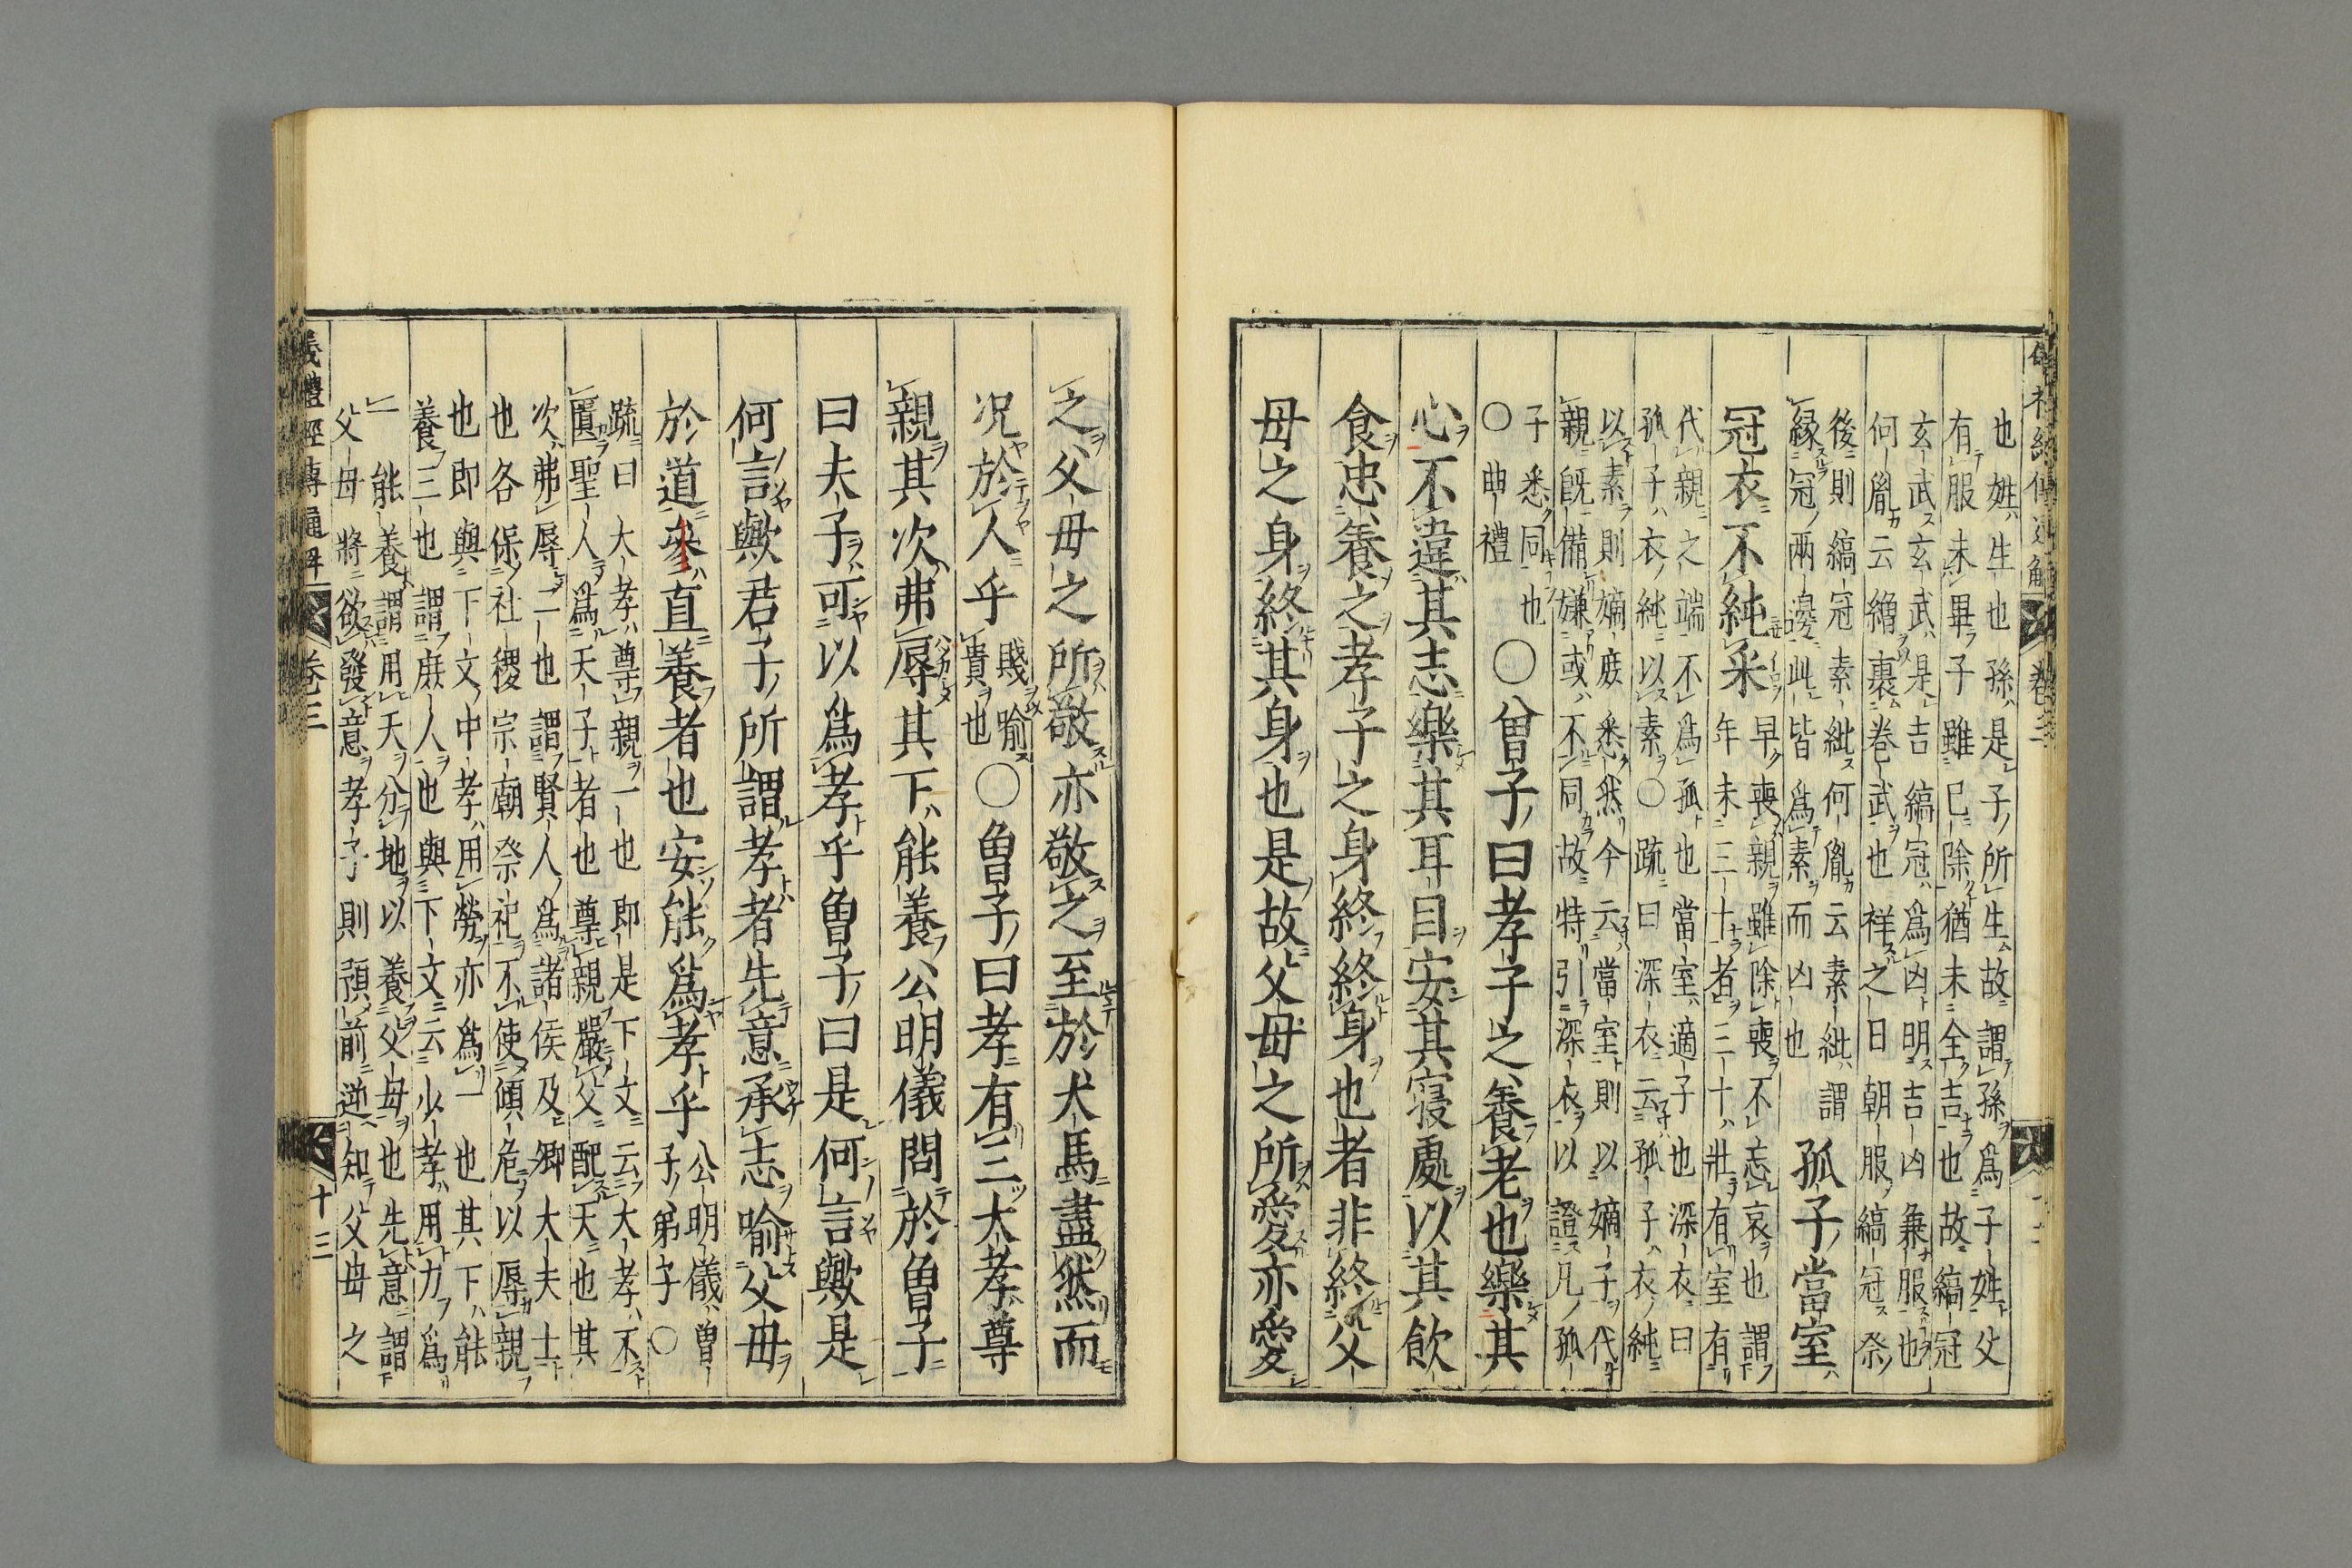 也姓生也孫是子所生故謂孫爲子姓父
有服未畢子雖已除猶未全吉也故縞冠
玄武玄武是吉縞冠爲凶明吉凶兼服也
何胤云繒裹卷武也祥之日朝服縞冠祭
後則縞冠素紕何胤云素紕謂
緣冠兩邊此皆爲素而凶也
孤子當室
冠衣不純采
早喪親雖除喪不忘哀也謂
年未三十者三十壯有室有
代親之端不爲孤也當室適子也深衣曰
孤子衣純以素〇疏曰深衣云孤子衣純
以素則嫡庶悉然今云當室則以嫡子代
親旣備嫌或不同故特引深衣以證凡孤
子悉同也
〇曲禮
〇曾子曰孝子之養老也樂其
心不違其志樂其耳目安其寢處以其飮
食忠養之孝子之身終終身也者非終父
母之身終其身也是故父母之所愛亦愛
之父母之所敬亦敬之至於犬馬盡然而
况於人乎
賤喻
貴也
〇曾子曰孝有三大孝尊
親其次弗辱其下能養公明儀問於曾子
曰夫子可以爲孝乎曾子曰是何言歟是
何言歟君子所謂孝者先意承志喻父母
於道參直養者也安能爲孝乎
公明儀曾
子弟子〇
疏曰大孝尊親一也即是下文云大孝不
匱聖人爲天子者也尊親嚴父配天也其
次弗辱二也謂賢人爲諸侯及卿大夫士
也各保社稷宗廟祭祀不使傾危以辱親
也即與下文中孝用勞亦爲一也其下能
養三也謂庶人也與下文云少孝用力爲
一能養謂用天分地以養父母也先意謂
父母將欲發意孝子則預前逆知父母之
儀禮經傳通解
卷三
十三